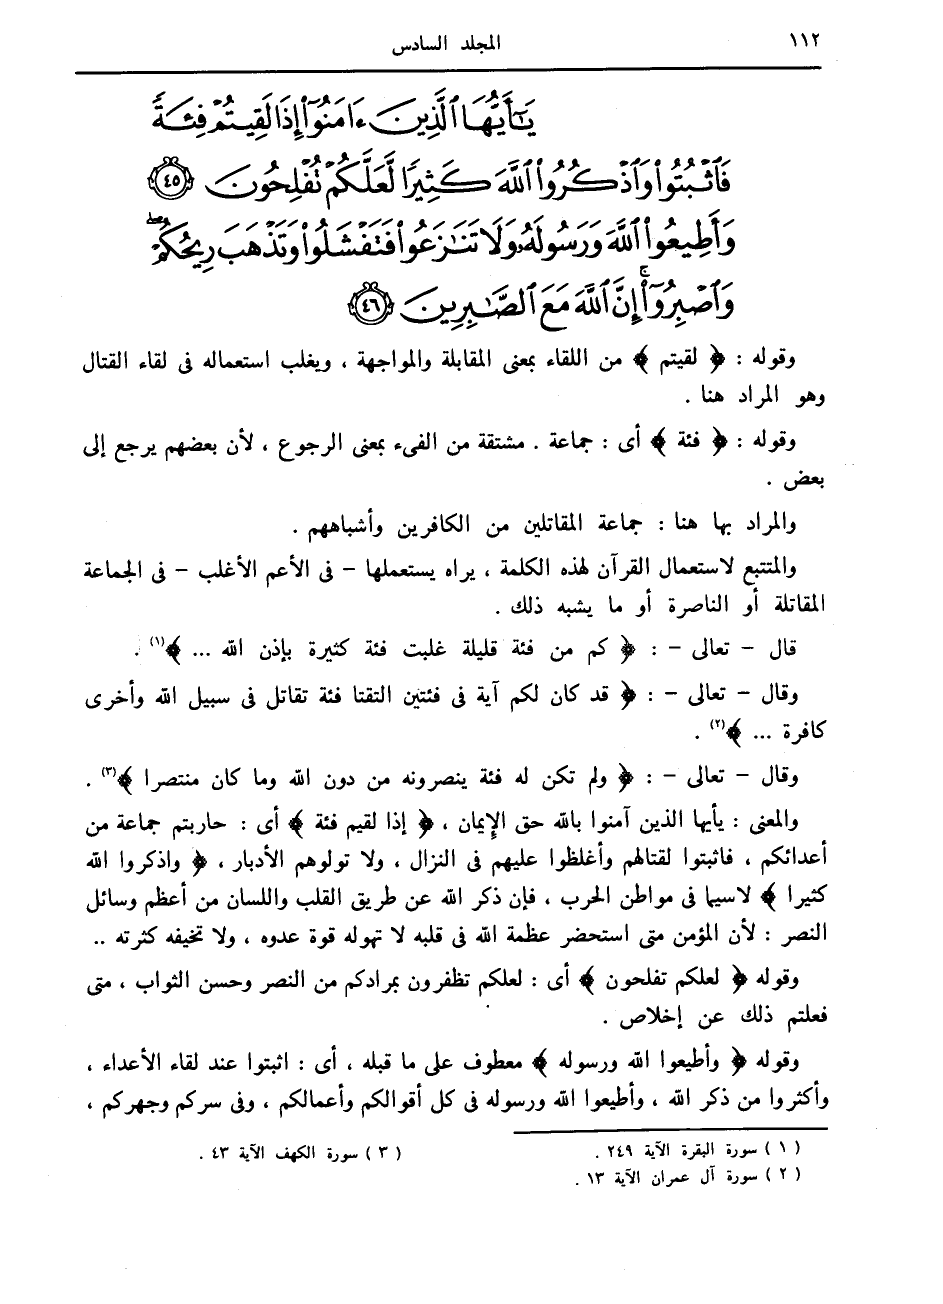 ١١٢ المجلد السادس
يَٰٓأَيُّهَا ٱلَّذِينَ ءَامَنُوٓا۟ إِذَا لَقِيتُمْ فِئَةً
فَٱثْبُتُوا۟ وَٱذْكُرُوا۟ ٱللَّهَ كَثِيرًا لَّعَلَّكُمْ تُفْلِحُونَ ٤٥
وَأَطِيعُوا۟ ٱللَّهَ وَرَسُولَهُۥ وَلَا تَنَٰزَعُوا۟ فَتَفْشَلُوا۟ وَتَذْهَبَ رِيحُكُمْ ۖ
وَٱصْبِرُوٓا۟ ۚ إِنَّ ٱللَّهَ مَعَ ٱلصَّٰبِرِينَ ٤٦
وقوله : ﴿ لقيتم ﴾ من اللقاء بمعنى المقابلة والمواجهة ، ويغلب استعماله فى لقاء القتال
وهو المراد هنا .
وقوله : ﴿ فئة ﴾ أى : جماعة . مشتقة من الفىء بمعنى الرجوع ، لأن بعضهم يرجع إلى
بعض .
والمراد بها هنا : جماعة المقاتلين من الكافرين وأشباههم .
والمتتبع لاستعمال القرآن لهذه الكلمة ، يراه يستعملها – فى الأعم الأغلب – فى الجماعة
المقاتلة أو الناصرة أو ما يشبه ذلك .
قال – تعالى – : ﴿ كم من فئة قليلة غلبت فئة كثيرة بإذن الله ... ﴾(١) .
وقال – تعالى – : ﴿ قد كان لكم آية فى فئتين التقتا فئة تقاتل فى سبيل الله وأخرى
كافرة ... ﴾(٢) .
وقال – تعالى – : ﴿ ولم تكن له فئة ينصرونه من دون الله وما كان منتصرا ﴾(٣) .
والمعنى : يأيها الذين آمنوا بالله حق الإيمان ، ﴿ إذا لقيم فئة ﴾ أى : حاربتم جماعة من
أعدائكم ، فاثبتوا لقتالهم وأغلظوا عليهم فى النزال ، ولا تولوهم الأدبار ، ﴿ واذكروا الله
كثيرا ﴾ لاسيما فى مواطن الحرب ، فإن ذكر الله عن طريق القلب واللسان من أعظم وسائل
النصر : لأن المؤمن متى استحضر عظمة الله فى قلبه لا تهوله قوة عدوه ، ولا تخيفه كثرته ..
وقوله ﴿ لعلكم تفلحون ﴾ أى : لعلكم تظفرون بمرادكم من النصر وحسن الثواب ، متى
فعلتم ذلك عن إخلاص .
وقوله ﴿ وأطيعوا الله ورسوله ﴾ معطوف على ما قبله ، أى : اثبتوا عند لقاء الأعداء ،
وأكثروا من ذكر الله ، وأطيعوا الله ورسوله فى كل أقوالكم وأعمالكم ، وفى سركم وجهركم ،
( ١ ) سورة البقرة الآية ٢٤٩ .
( ٢ ) سورة آل عمران الآية ١٣ .
( ٣ ) سورة الكهف الآية ٤٣ .